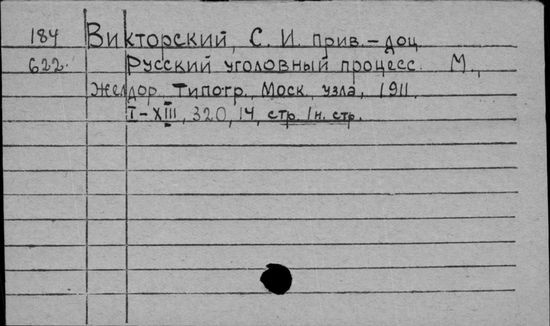 184 Викторский, С. И. прив.-доц.
622. Русский уголовный процесс. М.,
Желдор. Типогр. Моск. узла, 1911.
I-XIII, 320, 14, стр. 1 н. стр.